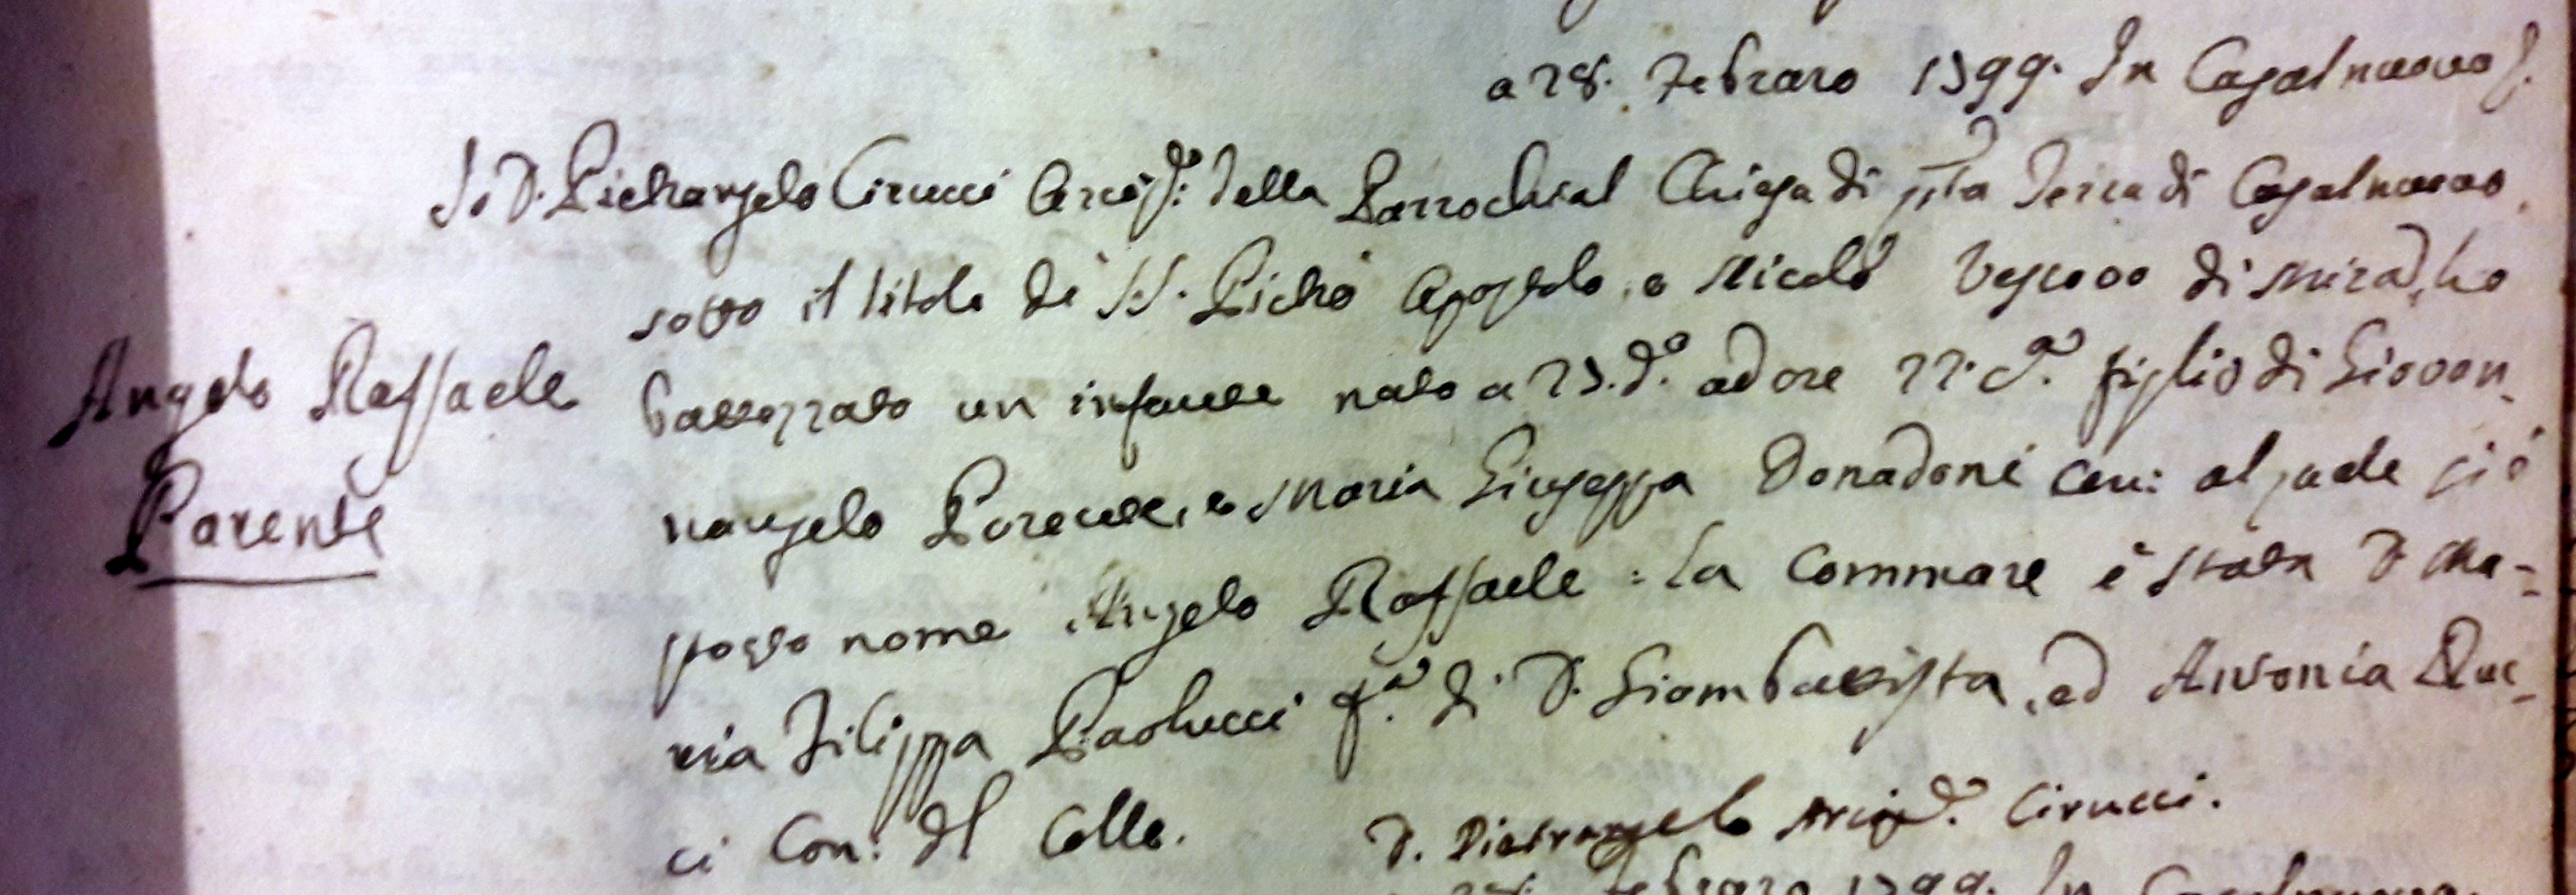 a 28. Febraro 1799. In Casalnuovo
Io D. Pietrangelo Cirucci Arcip.e della Parrochial Chiesa di q.sta Terra di Casalnuovo,
sotto il titolo di SS. Pietro Apostolo, e Nicolò Vescovo di Mira, ho
Angelo Raffaele
battezzato un infante nato a 25. d.o ad ore 22. c.a figlio di Giovan-
Parente
nangelo Parente, e Maria Giuseppa Donadoni Con: al quale si è
posto nome Angelo Raffaele: la Commare è stata D. Ma-
ria Filippa Paolucci f.a di D. Giombattista, ed Antonia Duc-
ci Con: del Colle.
D. Pietrangelo Arcip.e Cirucci.
Febraro 1799. In Casalnuovo